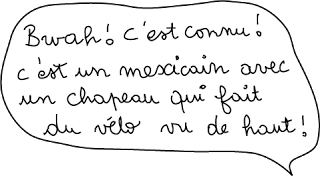 Bwah! c'est connu!
c'est un mexicain avec
un chapeau qui fait
du vélo vu de haut!